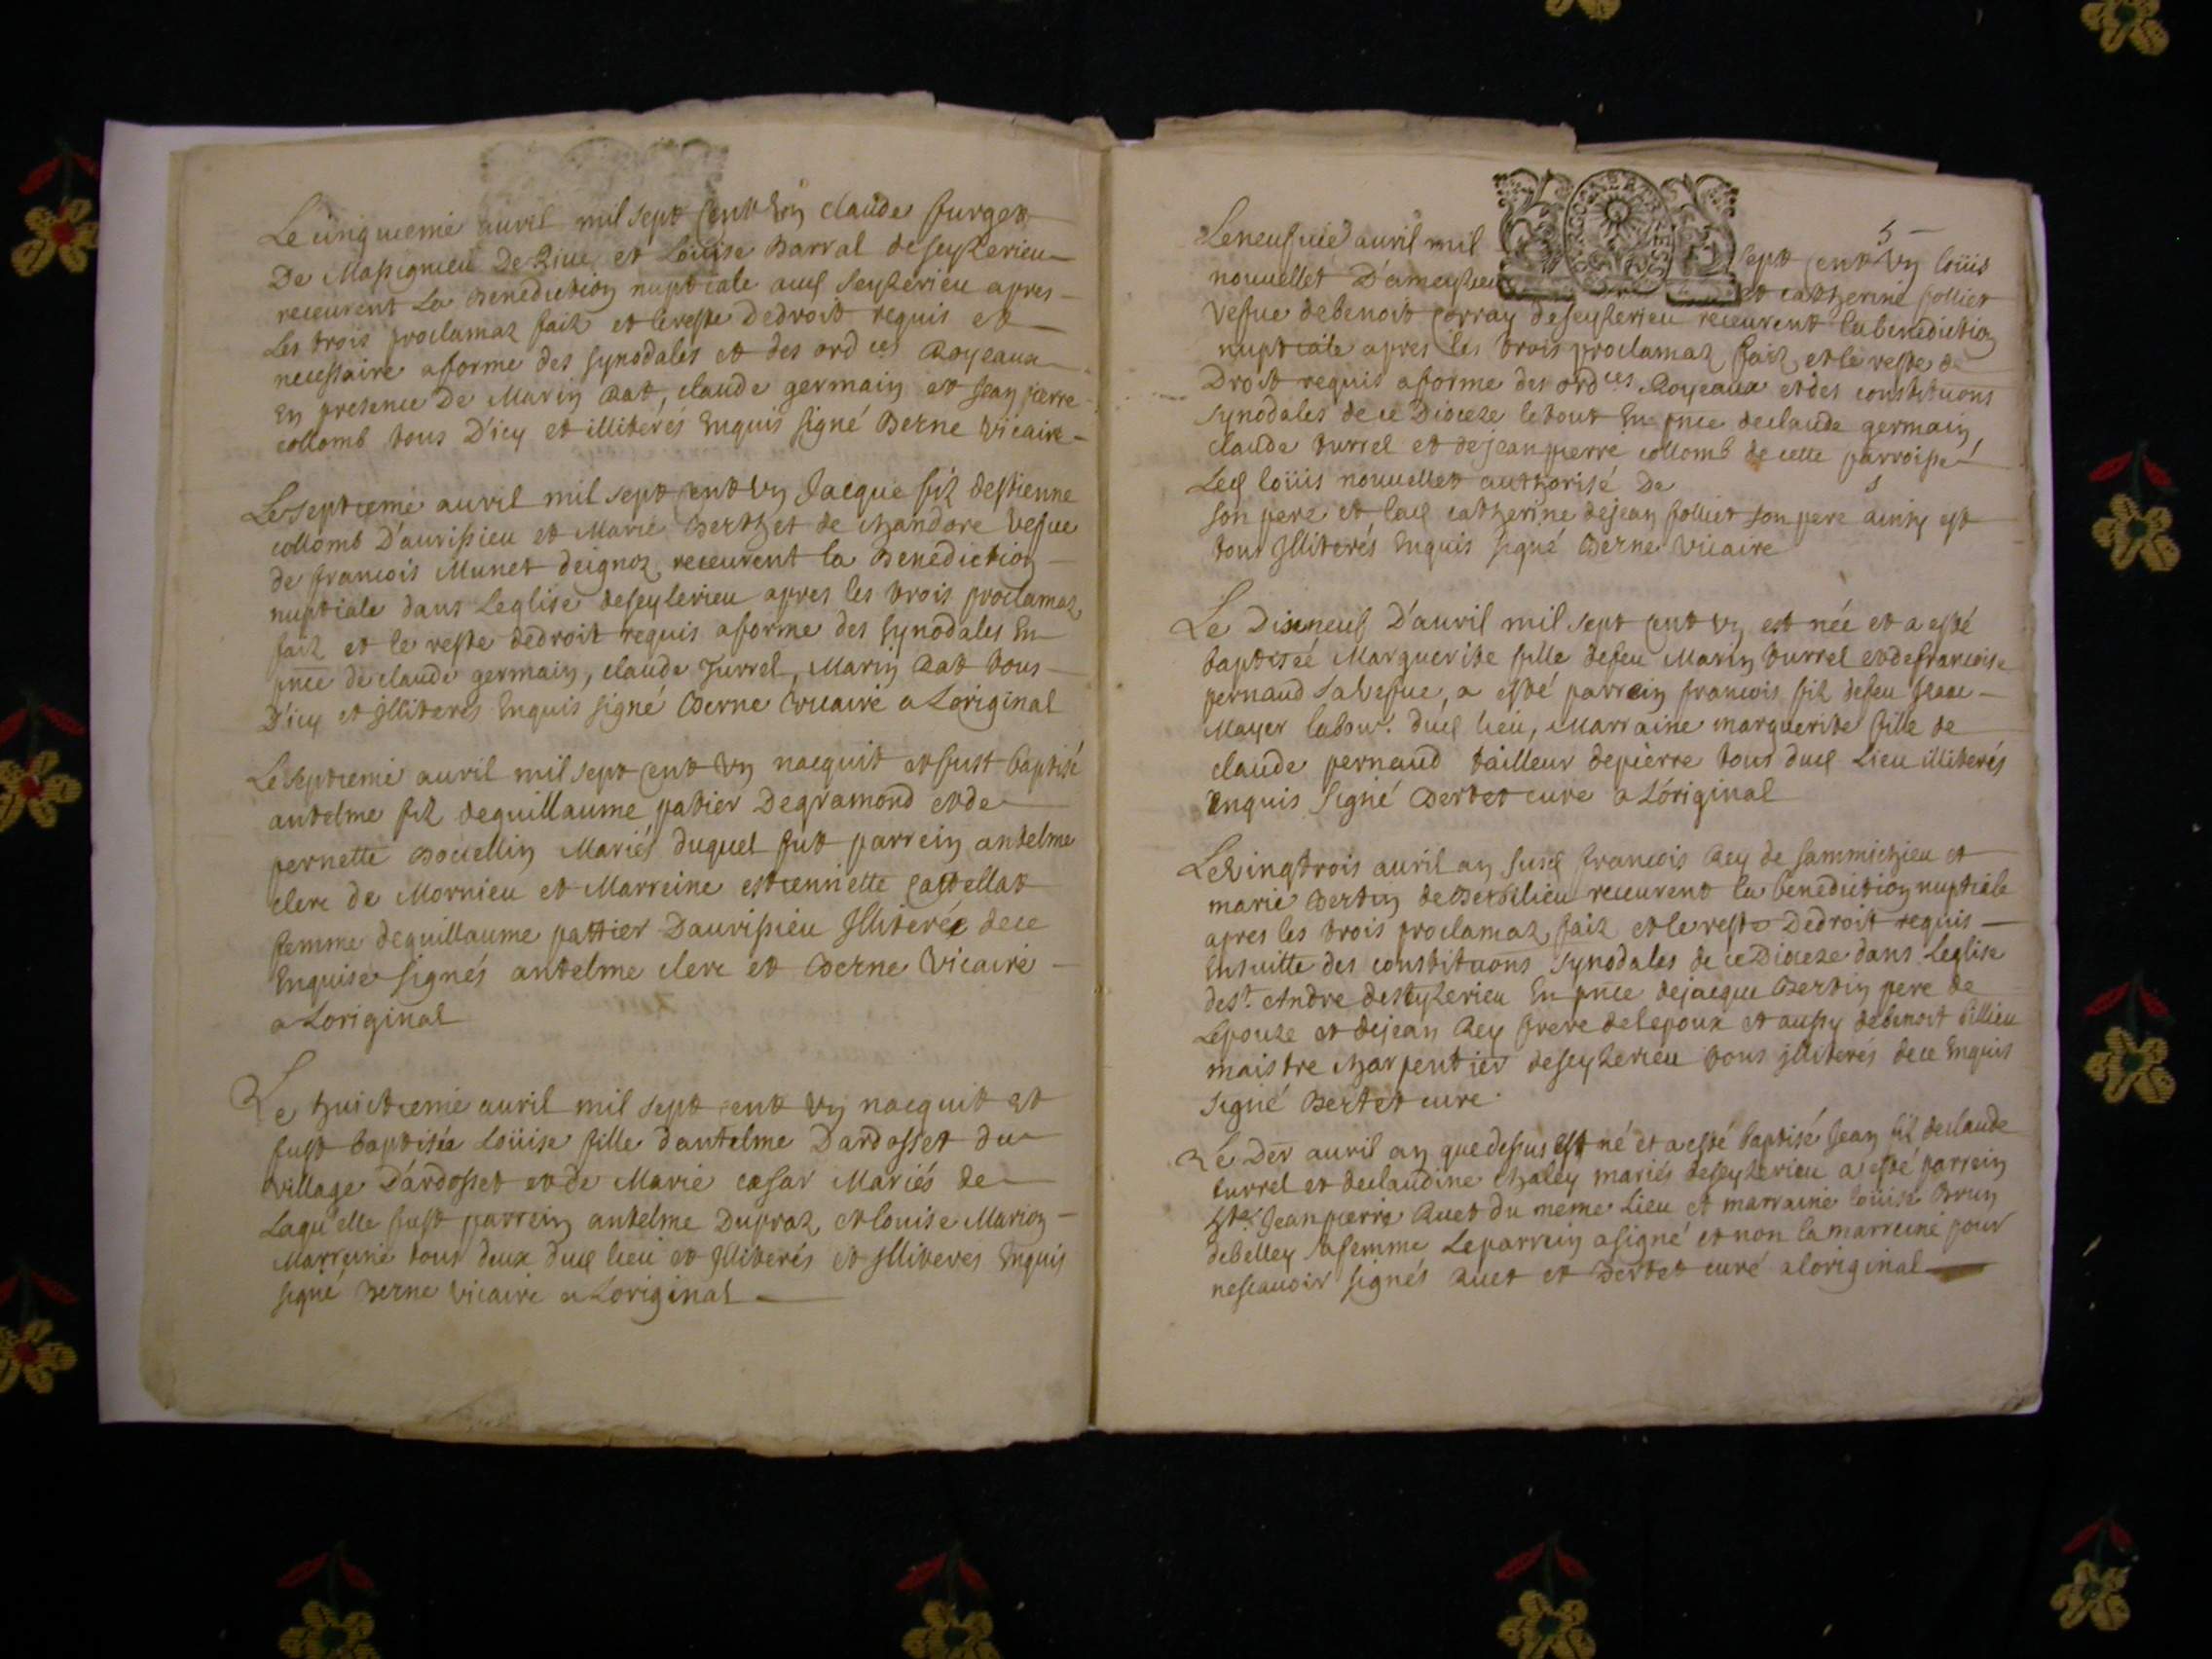 Le cinquiemé auril mil sept cent un claude furget
De Massignieu De Rive et Loüise Barral de seyzerieu
receurent La Benediction nuptiale aud seyzerieu apres
Les trois proclamaz faiz et le reste de droit requis et
necessaire a forme des synodales et des ordces Royeaux
En presence De Marin Rat, claude germain et Jean pierre
collomb tous D'icy et illiterés Enquis signé Berne Vicaire
Le septiemé auril mil sept cent un Jacque fiz d'estienne
collomb D'aurissieu et Marie Berthet de chandore Vefue
de francois Munet deignoz receurent la Benediction
nuptiale dans Leglise de seyzerieu apres les trois proclamaz
faiz et le reste de droit requis a forme des synodales En
pnce de claude germain, claude Turrel, Marin Rat tous
D'icy et illiterés Enquis signé Berne Vicaire a Loriginal
Le septiemé auril mil sept cent un nacquit et fust baptisé
antelme fiz de guillaume patier De gramond et de
pernette Bouellin Mariés duquel fut parrein antelme
clerc de Mornieu et Marreine estiennette Castellat
femme de guillaume pattier D'aurissieu Illiterée de ce
Enquise signés antelme clerc et Berne Vicaire
a Loriginal
Le huictiemé auril mil sept cent un nacquit et
fust baptisée Loüise fille d'antelme Dardosset du
village D'ardosset et de Marie cæsar Mariés de
Laquelle fust parrein antelme Dupraz et louise Marion
Marreine tous deux dud lieu et Illiterés et Illiteres Enquis
signé Berne Vicaire a Loriginal
5
Le neufuie auril mil sept cent un loüis
nouuellet D'ameyzieu et catherine folliet
Vefue de benoit Corray de seyzerieu receurent la benediction
nuptiale apres les trois proclamaz faiz et le reste de
Droit requis a forme des ordces Royeaux et des constituons
synodales de ce Dioceze le tout En pnce de claude germain,
claude turrel et de jean pierre collomb de cette parroisse
Led loüis nouuellet authorisé De
son pere et lad catherine de jean folliet son pere ainsy est
tous Illiterés Enquis signé Berne Vicaire
Le Dixneuf D'auril mil sept cent un est née et a esté
baptisée Marguerite fille de feu Marin turrel et de francoise
pernaud sa Vefue, a esté parrein francois fiz de feu
Mayer labour. dud lieu, Marraine marguerite fille de
claude pernaud tailleur de pierre tous dud Lieu illiterés
Enquis signé Bertet curé a L'original
Le Vingtrois auril an susd francois Rey de sammichieu et
marie Bertin de receurent la benediction nuptiale
apres les trois proclamaz faiz et le reste De droit requis
Ensuitte des constituons synodales de ce Dioceze dans Leglise
de st. Andre de seyzerieu En pnce de jacque Bertin pere de
Lepouze et de jean Rey frere de lepoux et aussy de benoit billieu
maistre charpentier de seyzerieu tous illiterés de ce Enquis
signé Bertet curé.
Le Der auril an que dessus est né et a esté baptisé Jean fiz de claude
turrel et de claudine Chaley mariés de seyzerieu a esté parrein
Jean pierre Ruet du meme Lieu et marraine loüise Brun
de belley sa femme Le parrein a signé et non la marreine pour
ne scauoir signés Ruet et Bertet curé a loriginal